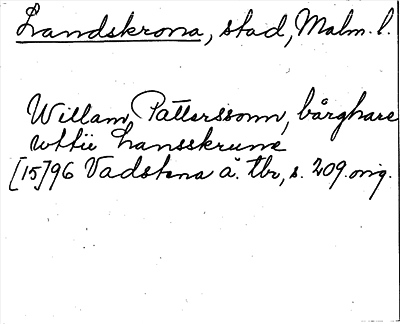 Landskrona, stad, Malm. l.
Willam, Pattersson, bårghare
wttii Lansskrune
[15]96 Vadstena ä. tbr, s. 209. orig.